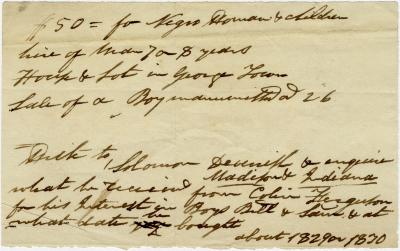 $50 = for Negro Woman & children
hire of Man 7 or 8 years
House & Lot in George Town
Sale of a Boy manumitted at 26
Distk to Solomon Devenish & enquire
Madison Indiana
what he received from Colin Ferguson
for his Interest in Boys Bill & Sam & at
what date he bought
about 1829 or 1830